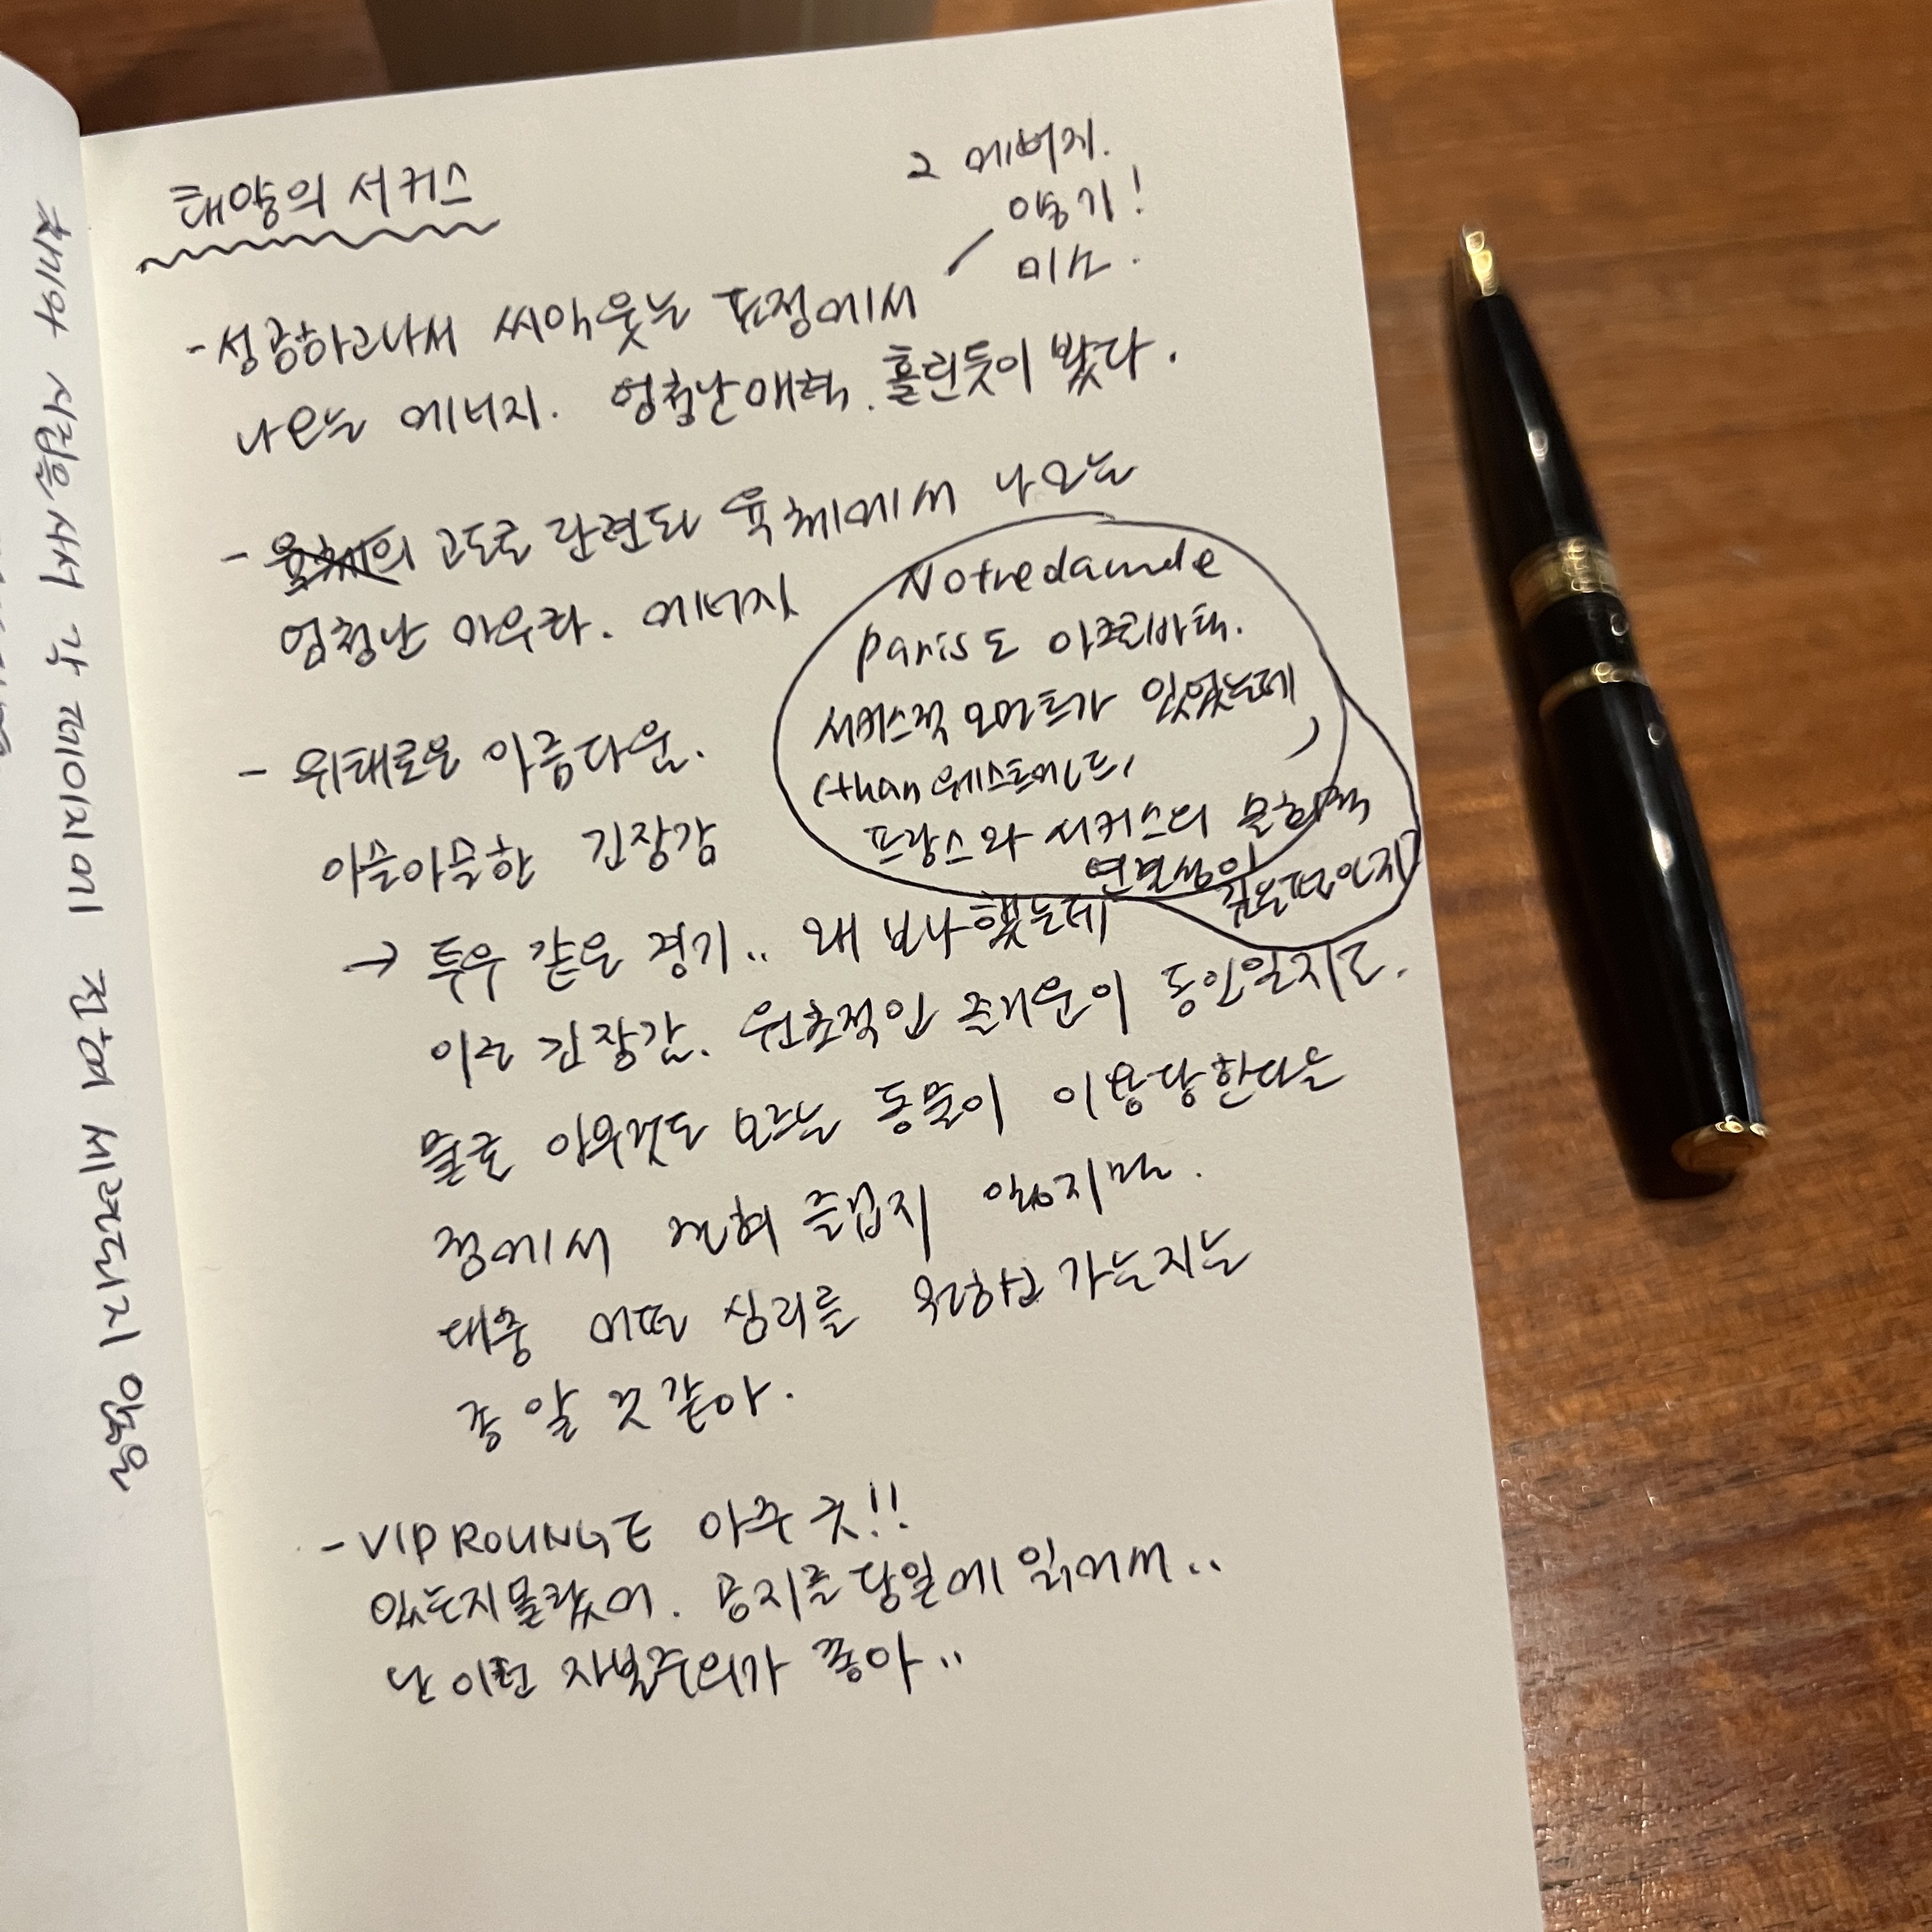 태양의 서커스
그 에너지.
활기!
미소.
- 성공하고나서 씨익 웃는 표정에서
나오는 에너지. 엄청난 매혹. 홀린듯이 봤다.
- 육체의 고도로 단련된 육체에서 나오는
엄청난 아우라. 에너지
Notredamde
paris도 아크로바틱.
서커스적 모먼트가 있었는데
(than 웨스트엔드,
프랑스와 서커스의 문화적
연결성이
깊은 때문인지?
- 위태로운 아름다움.
아슬아슬한 긴장감
→ 투우 같은 경기.. 왜 보나 했는데
이런 긴장감. 원초적인 즐거움이 동인일지도.
물론 아무것도 모르는 동물이 이용당한다는
점에서 전혀 즐겁지 않지만.
대중 어떤 심리를 원하고 가는지는
좀 알 것 같아.
- VIP ROUNGE 아주 굿!!
있는지 몰랐어. 공지를 당일에 읽어서..
난 이런 자본주의가 좋아..
각 페이지에 전혀 세련되지 않은